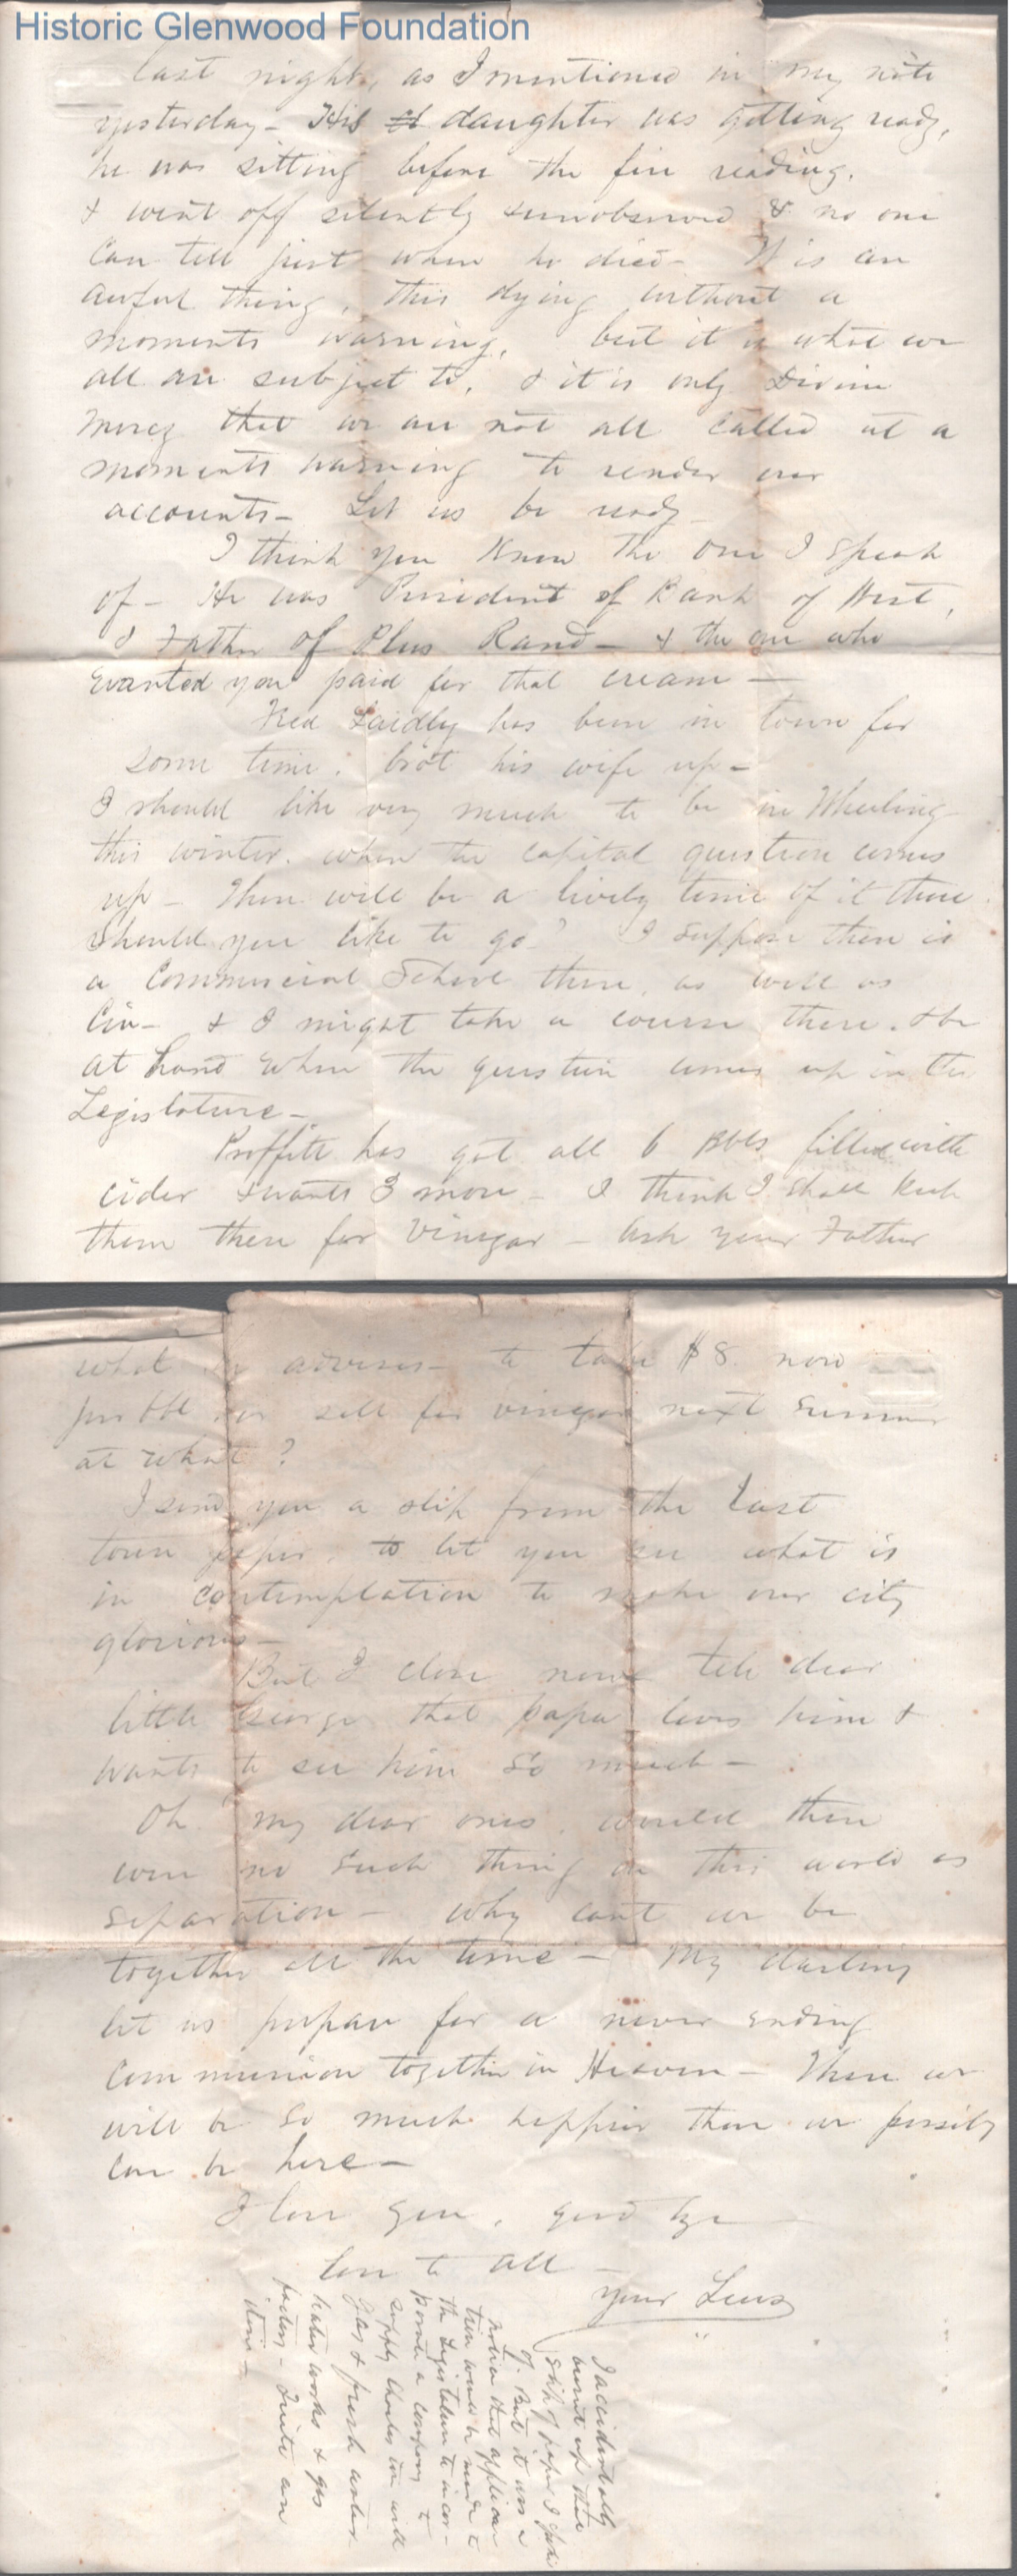 Historic Glenwood Foundation
last night, as I mentioned in my note
yesterday - His daughter was getting ready,
he was sitting before the fire reading.
& went off silently & unobserved & no one
can tell just when he died - It is an
awful thing, this dying without a
moments warning, but it is what we
all are subject to, & it is only Divine
mercy that we are not all called at a
moments warning to render our
accounts - Let us be ready
I think you know the one I speak
of - He was President of Bank of West,
& Father of Plus Rand - & the one who
wanted you paid for that cream -
Fred Laidley has been in town for
some time. bro't his wife up -
I should like very much to be in Wheeling
this winter. when the capital question comes
up - There will be a lively time of it there.
Should you like to go? I suppose there is
a Commercial School there, as well as
Cin - & I might take a course there. & be
at hand when the question comes up in the
Legislature -
Proffitt has got all 6 Bbls filled with
cider & wants 3 more - I think I shall keep
them there for vinegar - Ask your Father
what he advises - to take $8. now
per bbl. or sell for vinegar next summer
at what?
I send you a slip from the last
town paper, to let you see what is
in contemplation to make our city
glorious -
But I close now tell dear
little George that papa loves him &
wants to see him so much -
Oh my dear ones. would there
were no such thing in this world as
separation - why cant we be
together all the time - My darling
let us prepare for a never ending
Communion together in Heaven - There we
will be so much happier than we possibly
can be here -
I love you, good bye
love to all -
your Lewis
I accidentally
burnt up that
slip of paper I spoke
of. But it was a
notice that applica
tion would be made to
the Legislature to incor-
porate a company to
supply Charleston with
Gas & fresh water.
Water works & gas
factory - Quite an
item -